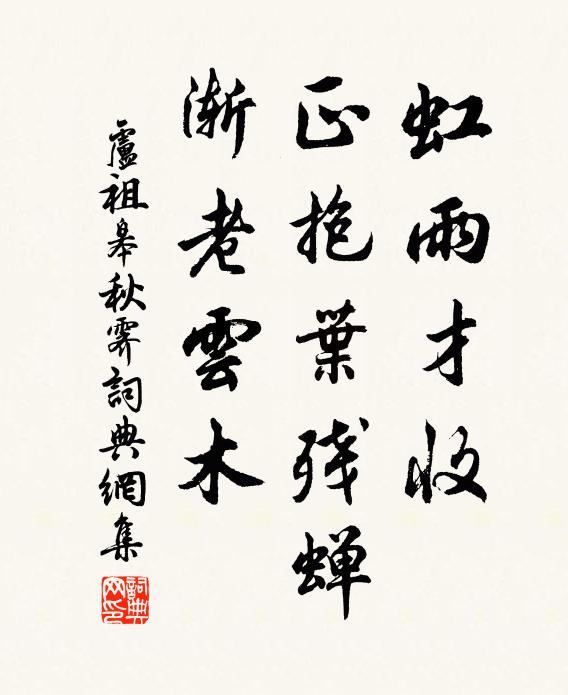 虹雨才收
正抱葉残蝉
漸老雲木
盧祖皋秋霽詞典網集
詞典網印